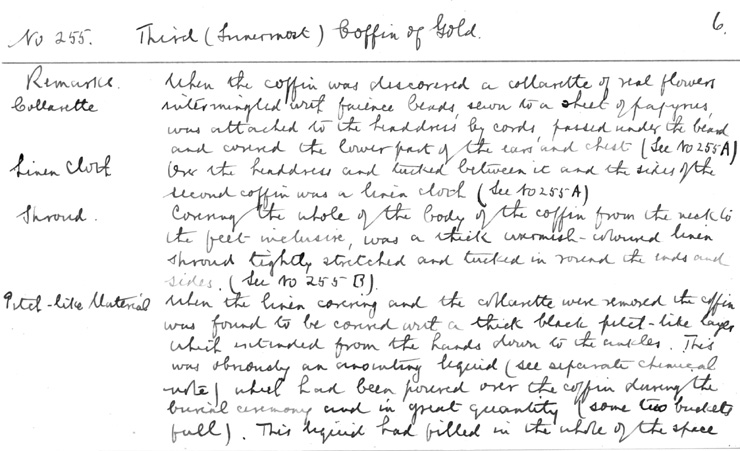 6.
No 255. Third (Innermost) Coffin of Gold.
Remarks. When the coffin was discovered a collarette of real flowers
Collarette intermingled with faience beads, sewn to a sheet of papyrus,
was attached to the headdress by cords, passed under the beard
and covered the lower part of the ears and chest (See No 255A)
Linen Cloth Over the headdress and tucked between it and the sides of the
second coffin was a linen cloth (See No 255A)
Shroud. Covering the whole of the body of the coffin from the neck to
the feet inclusive, was a thick warmish-coloured linen
shroud tightly stretched and tucked in round the ends and
sides. (See No 255B).
Pitch-like Material When the linen covering and the collarette were removed the coffin
was found to be covered with a thick black pitch-like layer
which extended from the hands down to the ankles. This
was obviously an anointing liquid (see separate chemical
note) which had been poured over the coffin during the
burial ceremony and in great quantity (some two buckets
full). This liquid had filled in the whole of the space